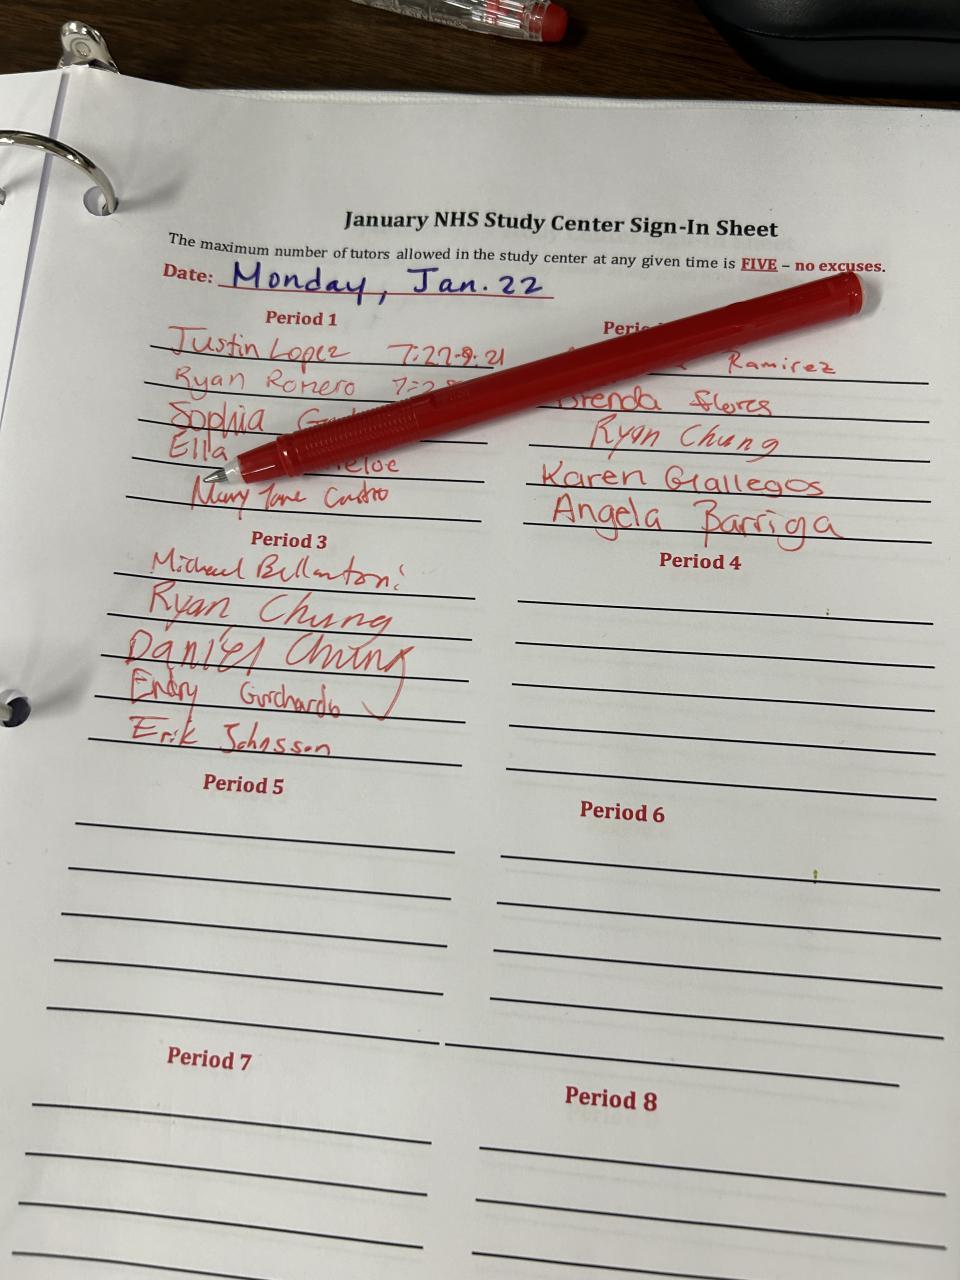 January NHS Study Center Sign-In Sheet
The maximum number of tutors allowed in the study center at any given time is FIVE – no excuses.
Date: Monday, Jan. 22
Period 1
Justin Lopez 7:27-8:21
Ryan Romero
Sophia
Ella
Mary Jane Castro
Ramirez
Brenda Flores
Ryan Chung
Karen Gallegos
Angela Barriga
Period 3
Michael Bellantoni
Ryan Chung
Daniel Chung
Endry Guichardo
Erik Johnsson
Period 4
Period 5
Period 6
Period 7
Period 8